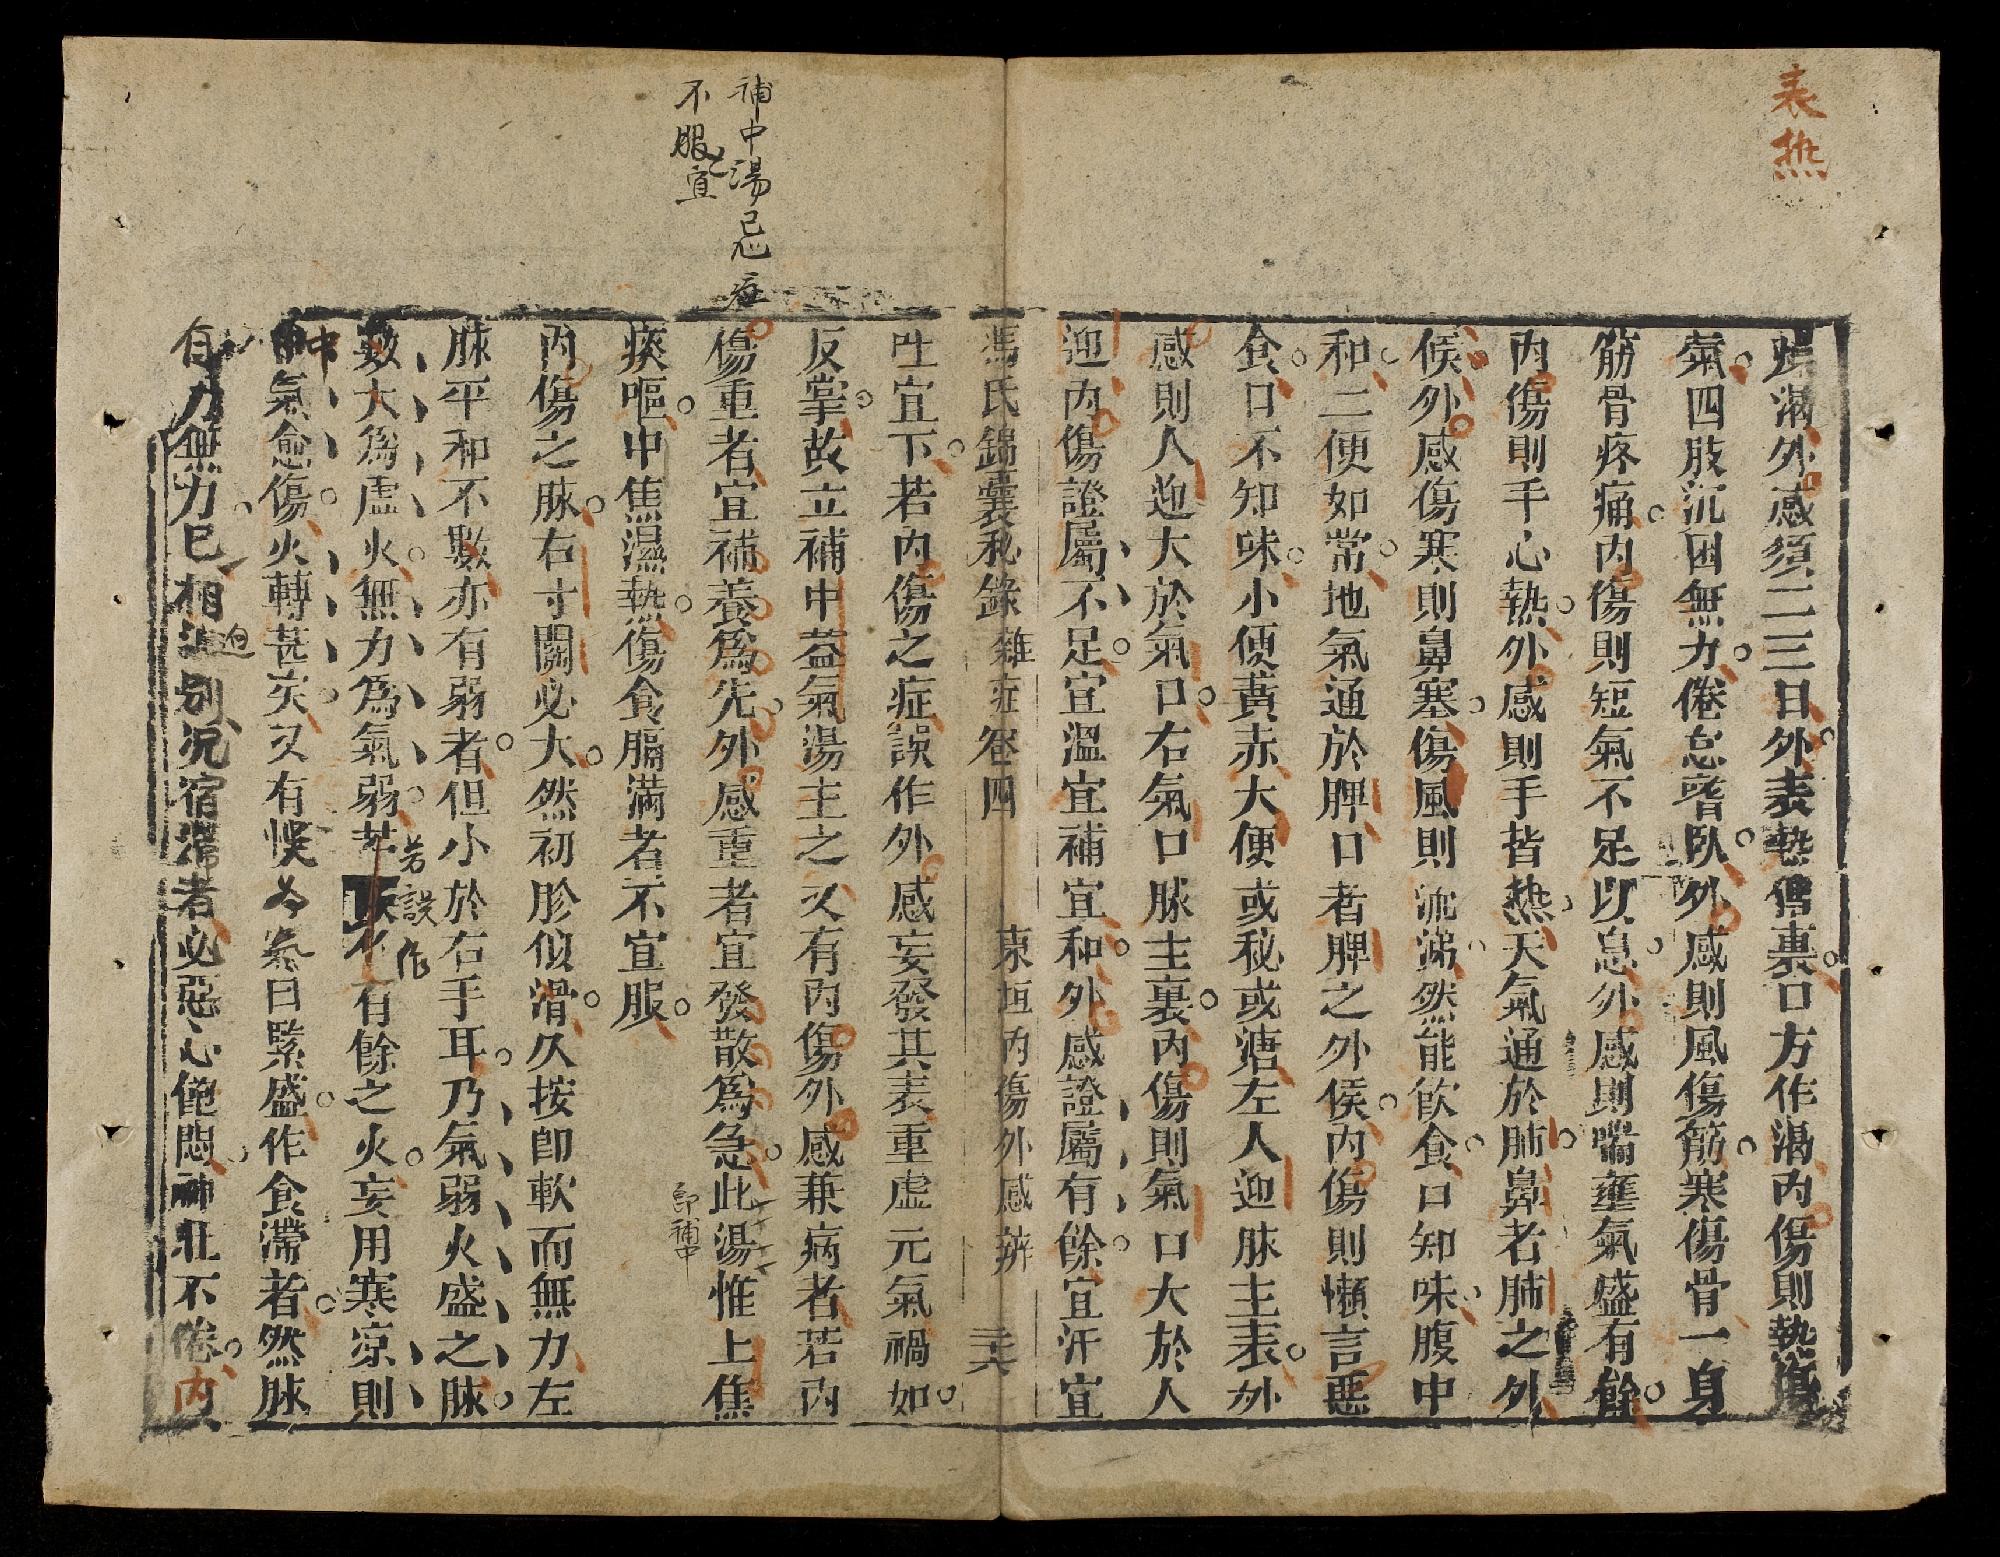 表热
燥渴外感須二三日外表熱傳裏口方作渴內傷則熱傷
氣四肢沉困無力倦怠嗜臥外感則風傷筋寒傷骨一身
筋骨疼痛內傷則短氣不足以息外感則喘壅氣盛有餘
內傷則手心熱外感則手背热天氣通於肺鼻者肺之外
候外感傷寒則鼻塞傷風則流涕然能飲食口知味腹中
和二便如常地氣通於脾口者脾之外候內傷則懶言惡
食口不知味小便黃赤大便或秘或溏左人迎脉主表外
感則人迎大於氣口右氣口脉主裏內傷則氣口大於人
迎內傷證屬不足宜溫宜補宜和外感證屬有餘宜汗宜
馮氏錦囊秘錄 雜症卷四 東垣內傷外感辨
吐宜下若內傷之症誤作外感妄發其表重虛元氣禍如
反掌故立補中益氣湯主之又有內傷外感兼病者若內
補中湯忌症
傷重者宜補養爲先外感重者宜發散爲急此湯惟上焦
不服宜
即補中
痰嘔中焦濕熱傷食膈滿者不宜服
內傷之脉右寸關必大然初胗似滑久按卽軟而無力左
脉平和不數亦有弱者但小於右手耳乃氣弱火盛之脉
若誤作
數大爲虛火無力爲氣弱 有餘之火妄用寒凉則
中氣愈傷火轉甚矣又有悞 氣口緊盛作食滯者然脉
自力無力已相逈別况宿滯者必惡心飽悶神壯不倦內